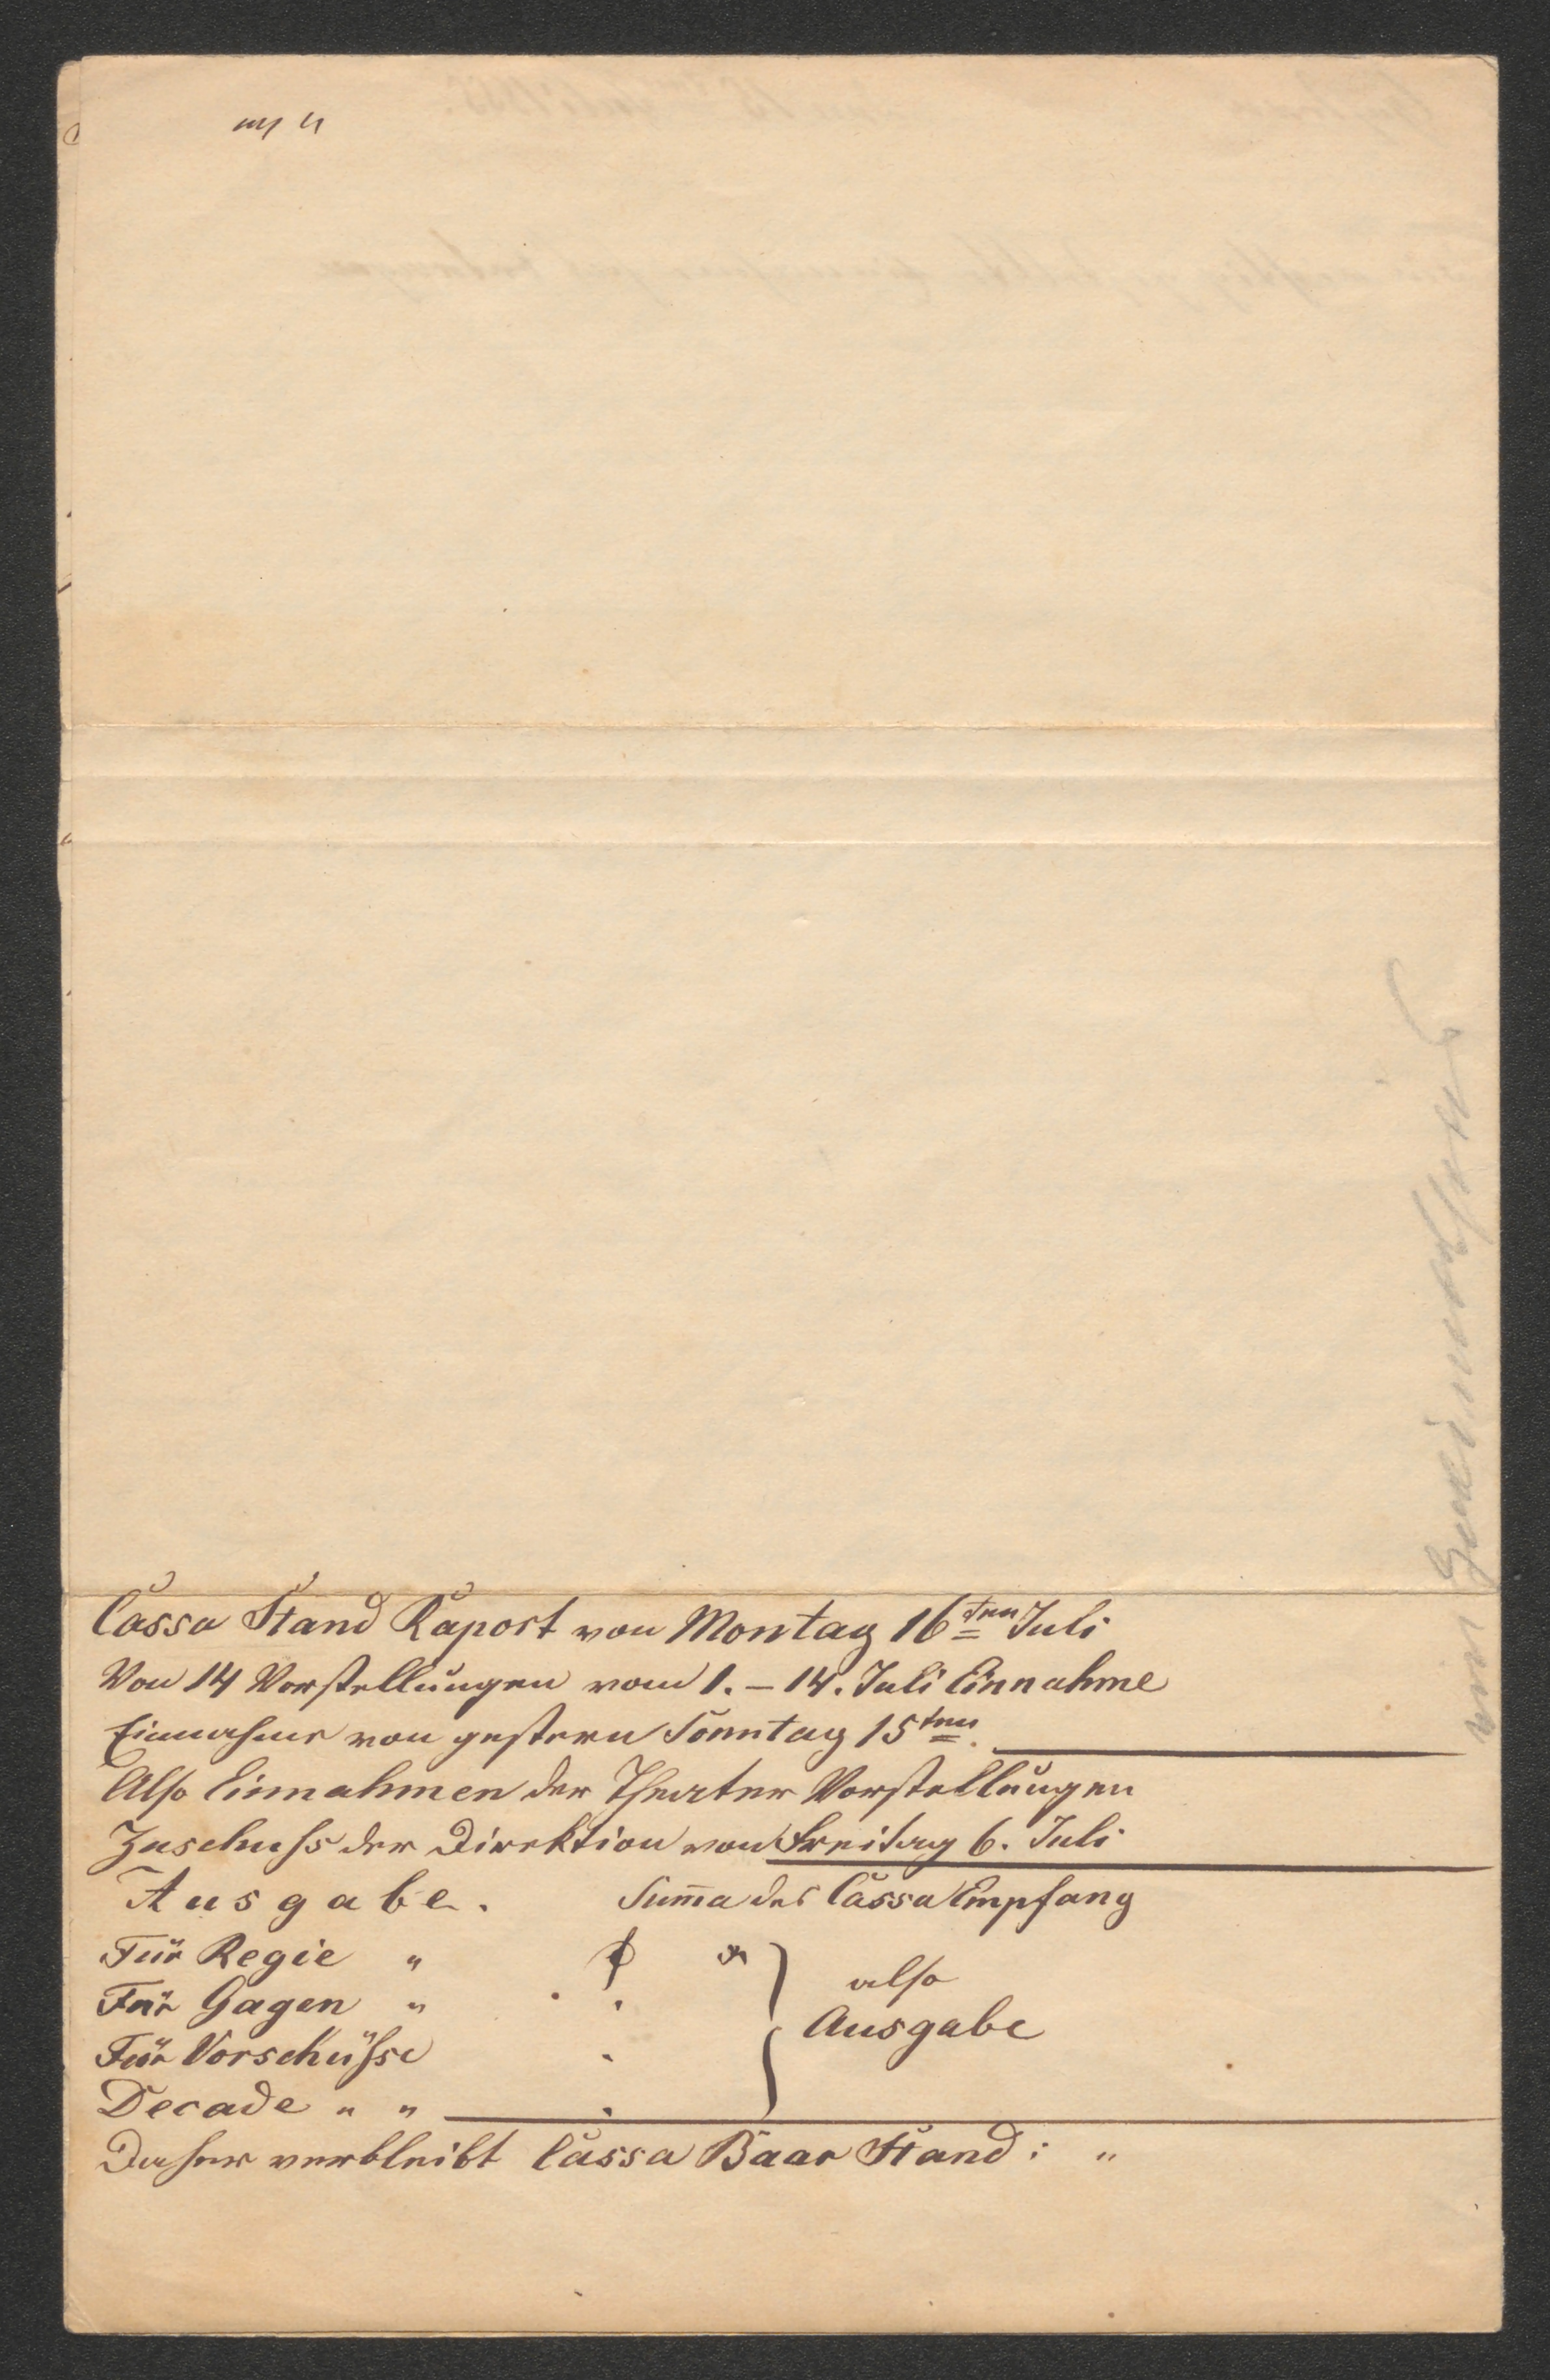 Cassa Stand Raport von Montag 16ten Juli
Von 14 Vorstellungen vom 1. – 14. Juli Einnahme
Einnahme von gestern Sonntag 15ten
Also Einnahmen der Theater Vorstellungen
Zuschuss der Direktion von Freitag 6. Juli
Ausgabe. Summa des Cassa Empfang
Für Regie "
Für Gagen "
Für Vorschüsse
Decade " "
also
Ausgabe
Daher verbleibt Cassa Baar Stand : "